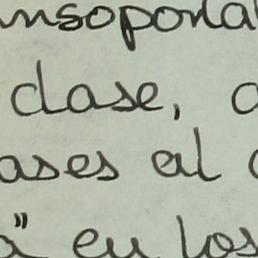 insoporta
clase, a
ases al
a" en los